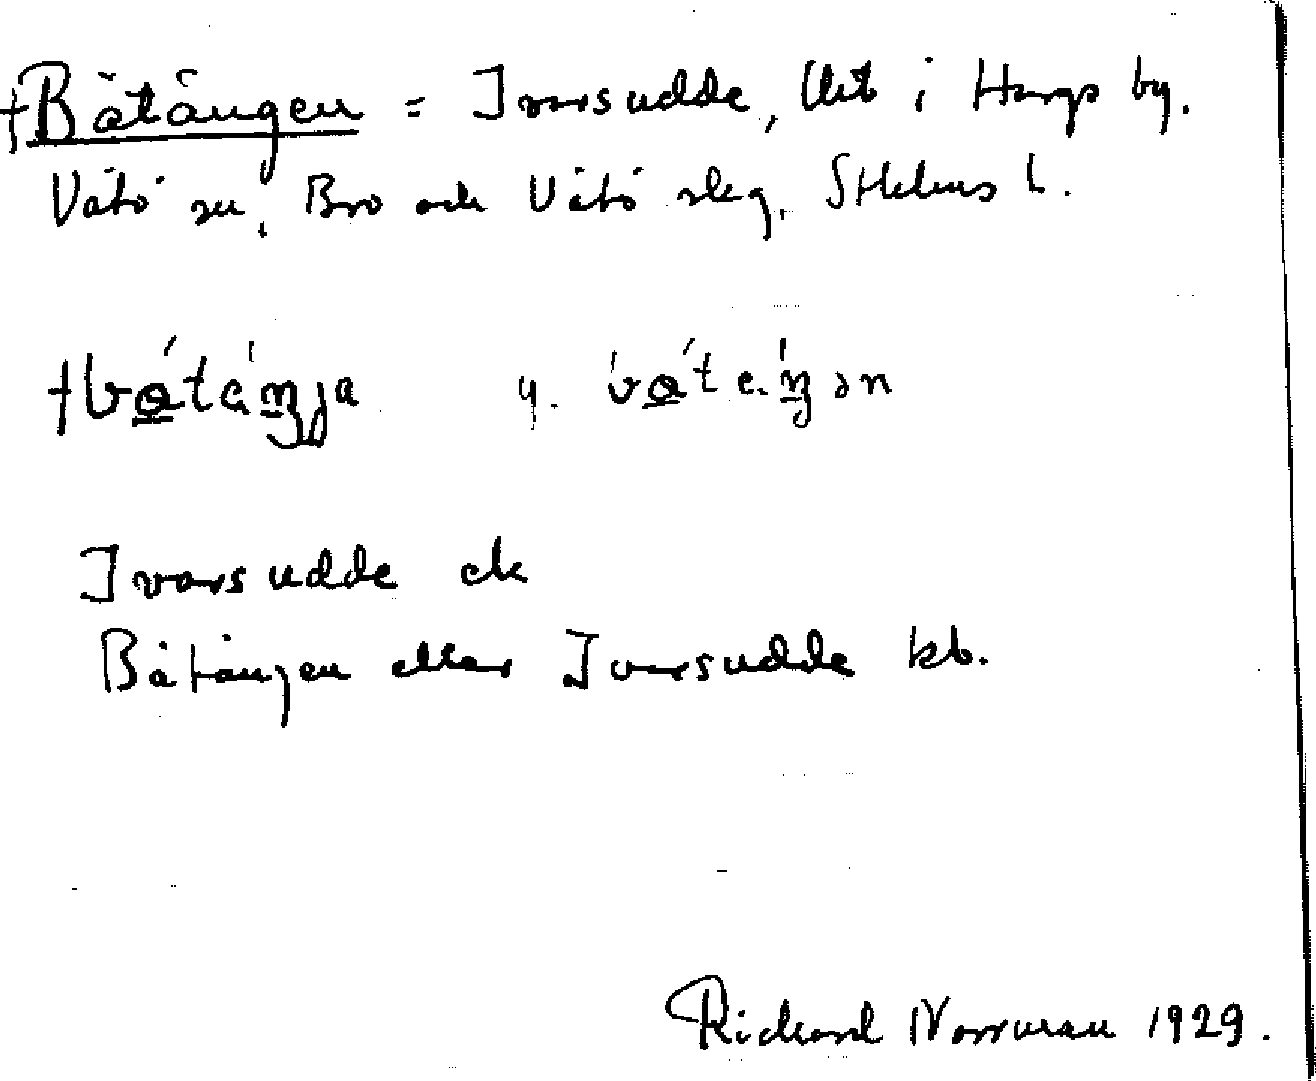 +Båtängen = Ivarsudde, lht i Hargs by.
Vätö sn, Bro och Vätö skg, Sthlms l.
y.
Ivarsudde ek
Båtängen eller Ivarsudde kb.
Richard Norrman 1929.